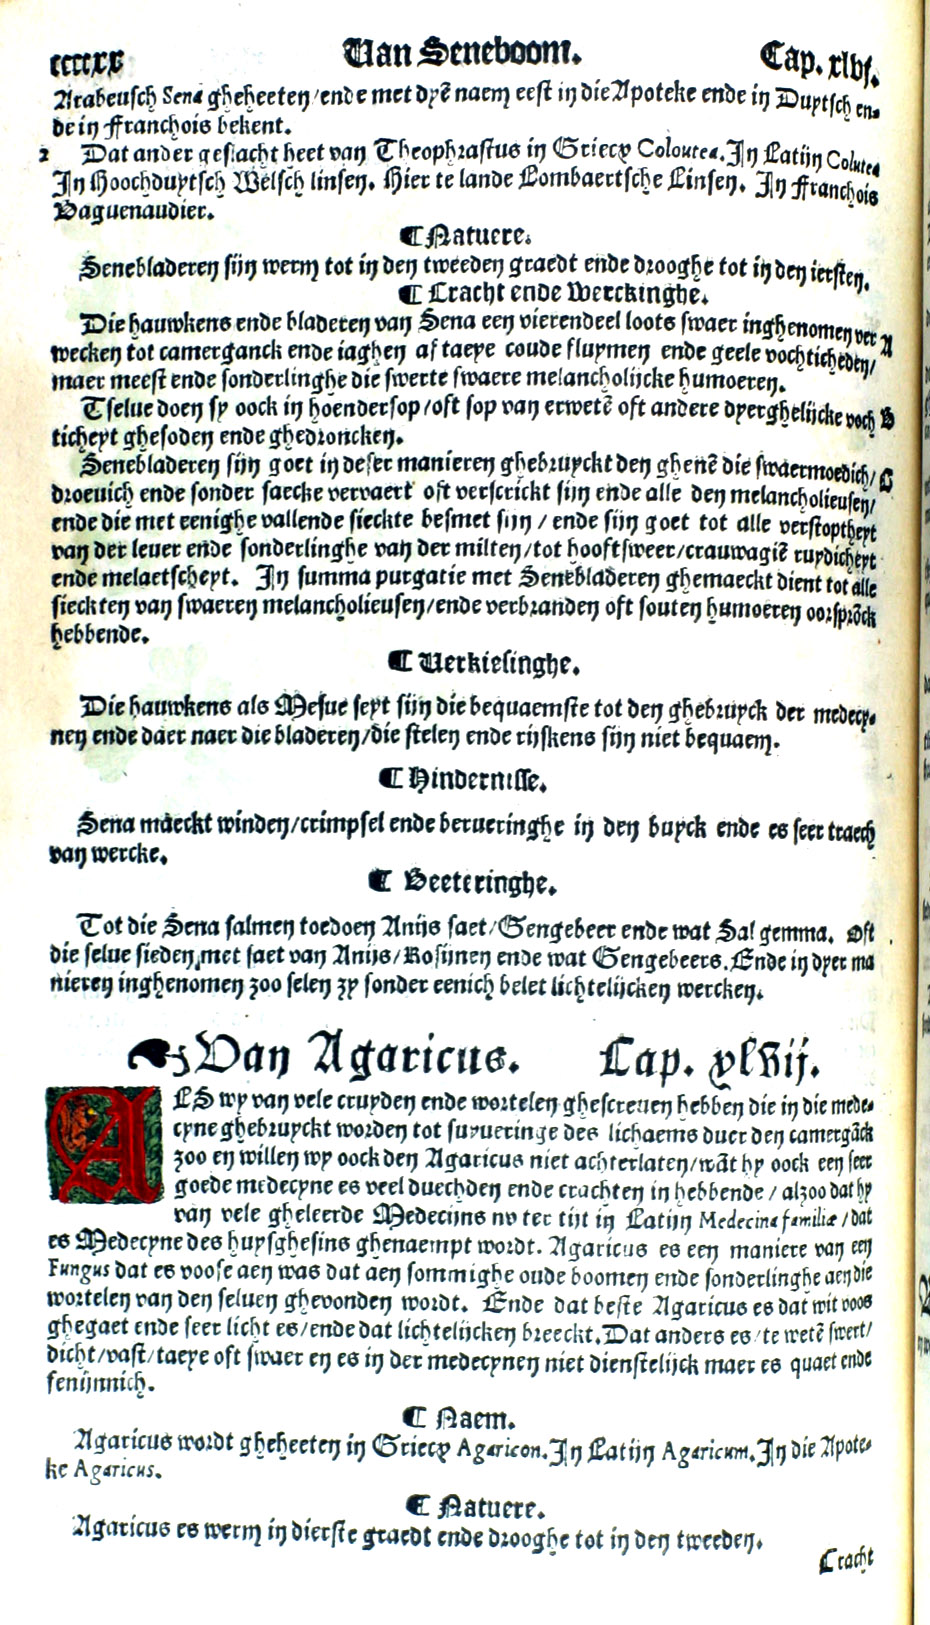 ccccxx Van Seneboom. Cap. xlvj.
Arabeusch Sena gheheeten/ende met dyē naem eest in die Apoteke ende in Duytsch en-
de in Franchois bekent.
2 Dat ander geslacht heet van Theophrastus in Griecx Coloutea. In Latijn Colutea
In Hoochduytsch Welsch linsen. Hier te lande Lombaertsche Linsen. In Franchois
Baguenaudier.
¶ Natuere.
Senebladeren sijn werm tot in den tweeden graedt ende drooghe tot in den iersten.
¶ Cracht ende Werckinghe.
Die hauwkens ende bladeren van Sena een vierendeel loots swaer inghenomen ver A
wecken tot camerganck ende iaghen af taeye coude fluymen ende geele vochticheden/
maer meest ende sonderlinghe die swerte swaere melancholijcke humoeren.
Tselue doen sy oock in hoendersop/oft sop van erwetē oft andere dyerghelijcke voch B
ticheyt ghesoden ende ghedroncken.
Senebladeren sijn goet in deser manieren ghebruyckt den ghenē die swaermoedich/ C
droeuich ende sonder saecke vervaert oft verscrickt sijn ende alle den melancholieusen/
ende die met eenighe vallende sieckte besmet sijn / ende sijn goet tot alle verstoptheyt
van der leuer ende sonderlinghe van der milten/tot hooftsweer/crauwagiē ruydicheyt
ende melaetscheyt. In summa purgatie met Senebladeren ghemaeckt dient tot alle
sieckten van swaeren melancholieusen/ende verbranden oft souten humoeren oorsprōck
hebbende.
¶ Verkiesinghe.
Die hauwkens als Mesue seyt sijn die bequaemste tot den ghebruyck der medecy-
nen ende daer naer die bladeren/die stelen ende rijskens sijn niet bequaem.
¶ Hindernisse.
Sena maeckt winden/crimpsel ende berueringhe in den buyck ende es seer traech
van wercke.
¶ Beeteringhe.
Tot die Sena salmen toedoen Anijs saet/Gengebeer ende wat Sal gemma. Oft
die selue sieden met saet van Anijs/Rosijnen ende wat Gengebeers. Ende in dyer ma
nieren inghenomen zoo selen zy sonder eenich belet lichtelijcken wercken.
Van Agaricus. Cap. xlvij.
ALS wy van vele cruyden ende wortelen ghescreuen hebben die in die mede-
cyne ghebruyckt worden tot suyueringe des lichaems duer den camergāck
zoo en willen wy oock den Agaricus niet achterlaten/wāt hy oock een seer
goede medecyne es veel duechden ende crachten in hebbende / alzoo dat hy
van vele gheleerde Medecijns nv ter tijt in Latijn Medecina familiæ / dat
es Medecyne des huysghesins ghenaempt wordt. Agaricus es een maniere van een
Fungus dat es voose aen was dat aen sommighe oude boomen ende sonderlinghe aen die
wortelen van den seluen ghevonden wordt. Ende dat beste Agaricus es dat wit voos
ghegaet ende seer licht es/ende dat lichtelijcken breeckt. Dat anders es/te wetē swert/
dicht/vast/taeye oft swaer en es in der medecynen niet dienstelijck maer es quaet ende
fenijnnich.
¶ Naem.
Agaricus wordt gheheeten in Griecx Agaricon. In Latijn Agaricum. In die Apote-
ke Agaricus.
¶ Natuere.
Agaricus es werm in dierste graedt ende drooghe tot in den tweeden.
Cracht